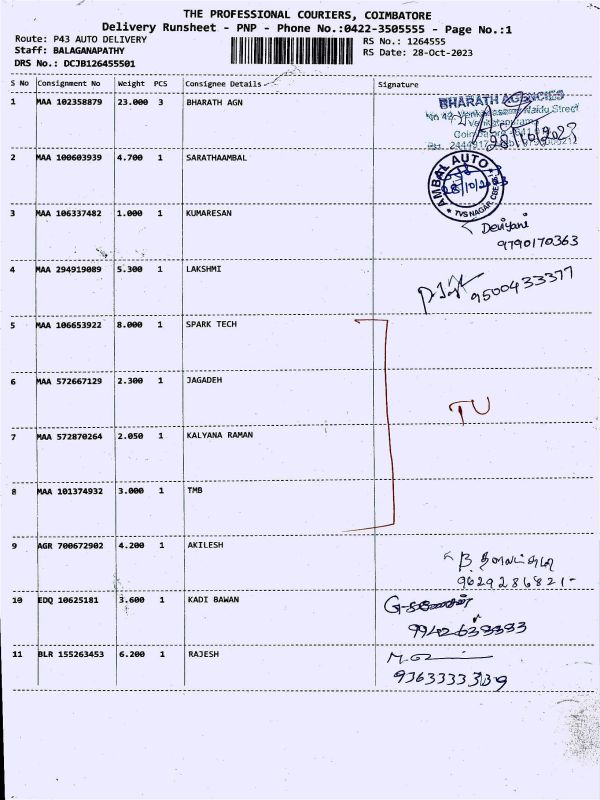 THE PROFESSIONAL COURIERS, COIMBATORE
Delivery Runsheet - PNP - Phone No.:0422-3505555 - Page No.:1
Route: P43 AUTO DELIVERY RS No.: 1264555
Staff: BALAGANAPATHY RS Date: 28-Oct-2023
DRS No.: DCJB126455501
S No Consignment No Weight PCS Consignee Details Signature
1 MAA 102358879 23.000 3 BHARATH AGN
BHARATH AGENCIES
Naidu Street
28/10/2023
2 MAA 100603939 4.700 1 SARATHAAMBAL
AMBAL AUTO
28/10/2023
TVS NAGAR, CBE
3 MAA 106337482 1.000 1 KUMARESAN
Deviyani
9790170363
4 MAA 294919089 5.300 1 LAKSHMI
9500433377
5 MAA 106653922 8.000 1 SPARK TECH
6 MAA 572667129 2.300 1 JAGADEH
TU
7 MAA 572870264 2.050 1 KALYANA RAMAN
8 MAA 101374932 3.000 1 TMB
9 AGR 700672902 4.200 1 AKILESH
9629286821-
10 EDQ 10625181 3.600 1 KADI BAWAN
11 BLR 155263453 6.200 1 RAJESH